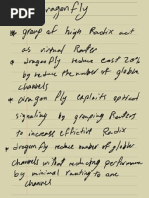 Dragonfly
* group of high Radix act
as virtual Router
* dragonfly reduce cost 20%
by reduce the number of globle
channels
* Dragon fly exploits optical
signaling by grouping Routers
to increase effictive Radix
* dragonfly reduce number of globler
channels without reducing performance
by minimal routing to one
channel